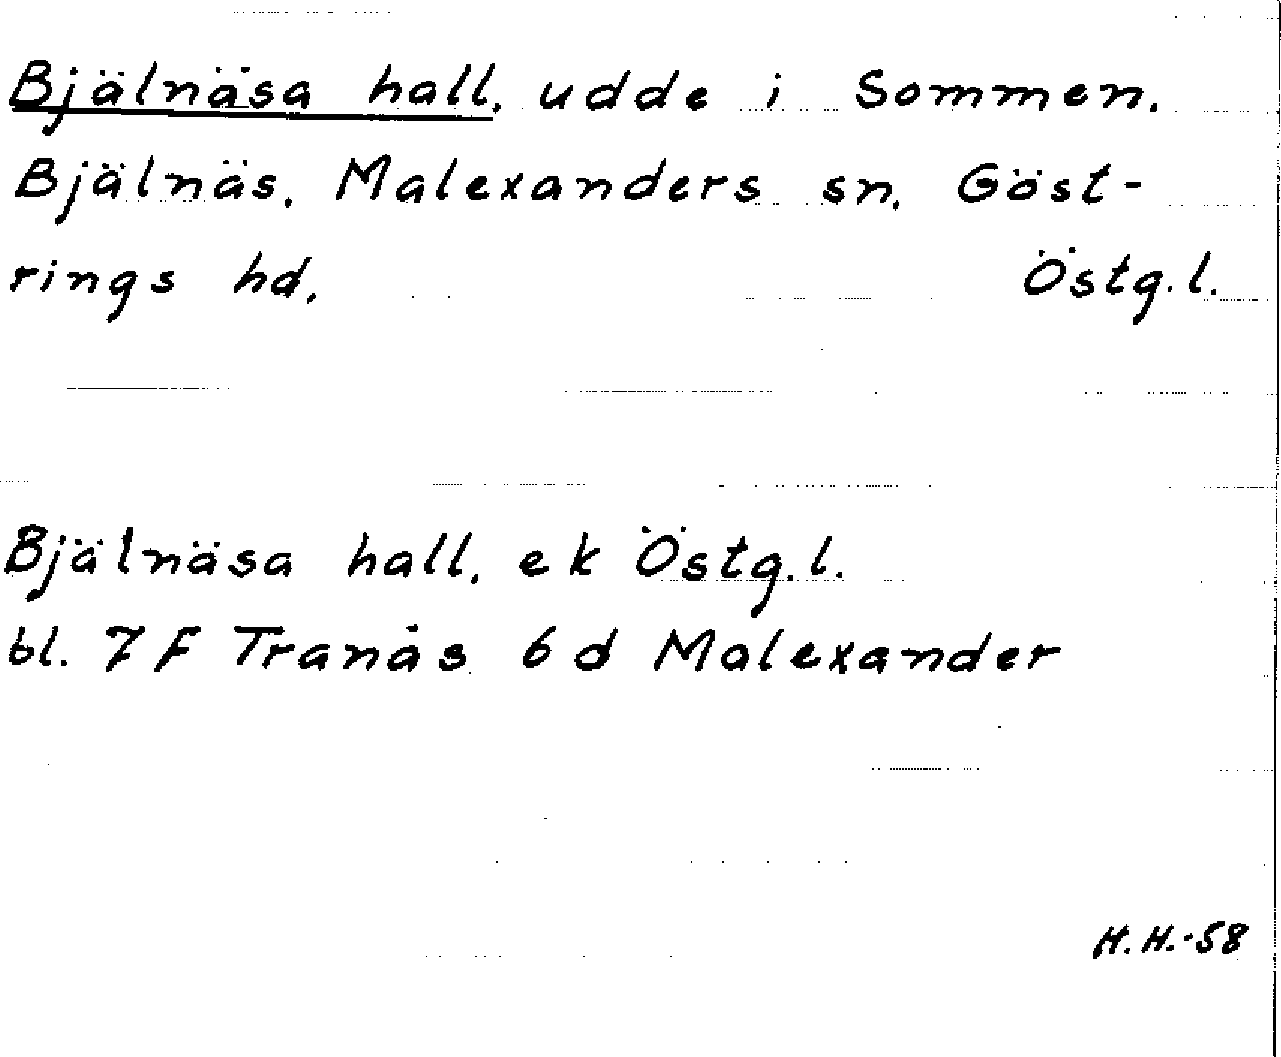 Bjälnäsa hall, udde i Sommen.
Bjälnäs, Malexanders sn, Göst-
rings hd, Östg.l.
Bjälnäsa hall, ek Östg.l.
bl. 7F Tranås 6d Malexander
H.H.-58